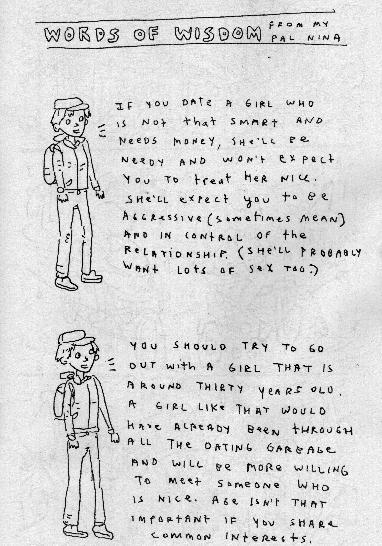 WORDS OF WISDOM FROM MY
PAL NINA
IF YOU DATE A GIRL WHO
IS NOT that SMART AND
NEEDS MONEY, SHE'LL BE
NEEDY AND WON'T EXPECT
YOU TO treat HER NICE.
SHE'LL EXPECT YOU TO BE
AGGRESSIVE (SOMETIMES MEAN)
AND IN CONTROL OF the
RELATIONSHIP. (SHE'LL PROBABLY
WANT LOTS OF SEX TOO.)
YOU SHOULD TRY TO GO
OUT WITH A GIRL THAT IS
AROUND THIRTY YEARS OLD.
A GIRL LIKE THAT WOULD
HAVE ALREADY BEEN THROUGH
ALL THE DATING GARBAGE
AND WILL BE MORE WILLING
TO MEET SOMEONE WHO
IS NICE. AGE ISN'T THAT
IMPORTANT IF YOU SHARE
COMMON INTERESTS.